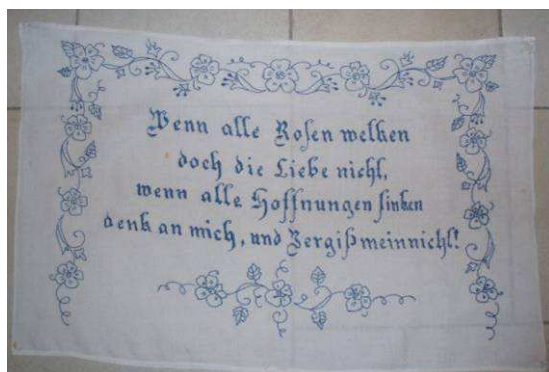 Wenn alle Rosen welken
doch die Liebe nicht,
wenn alle Hoffnungen sinken
denk an mich, und Vergißmeinnicht!